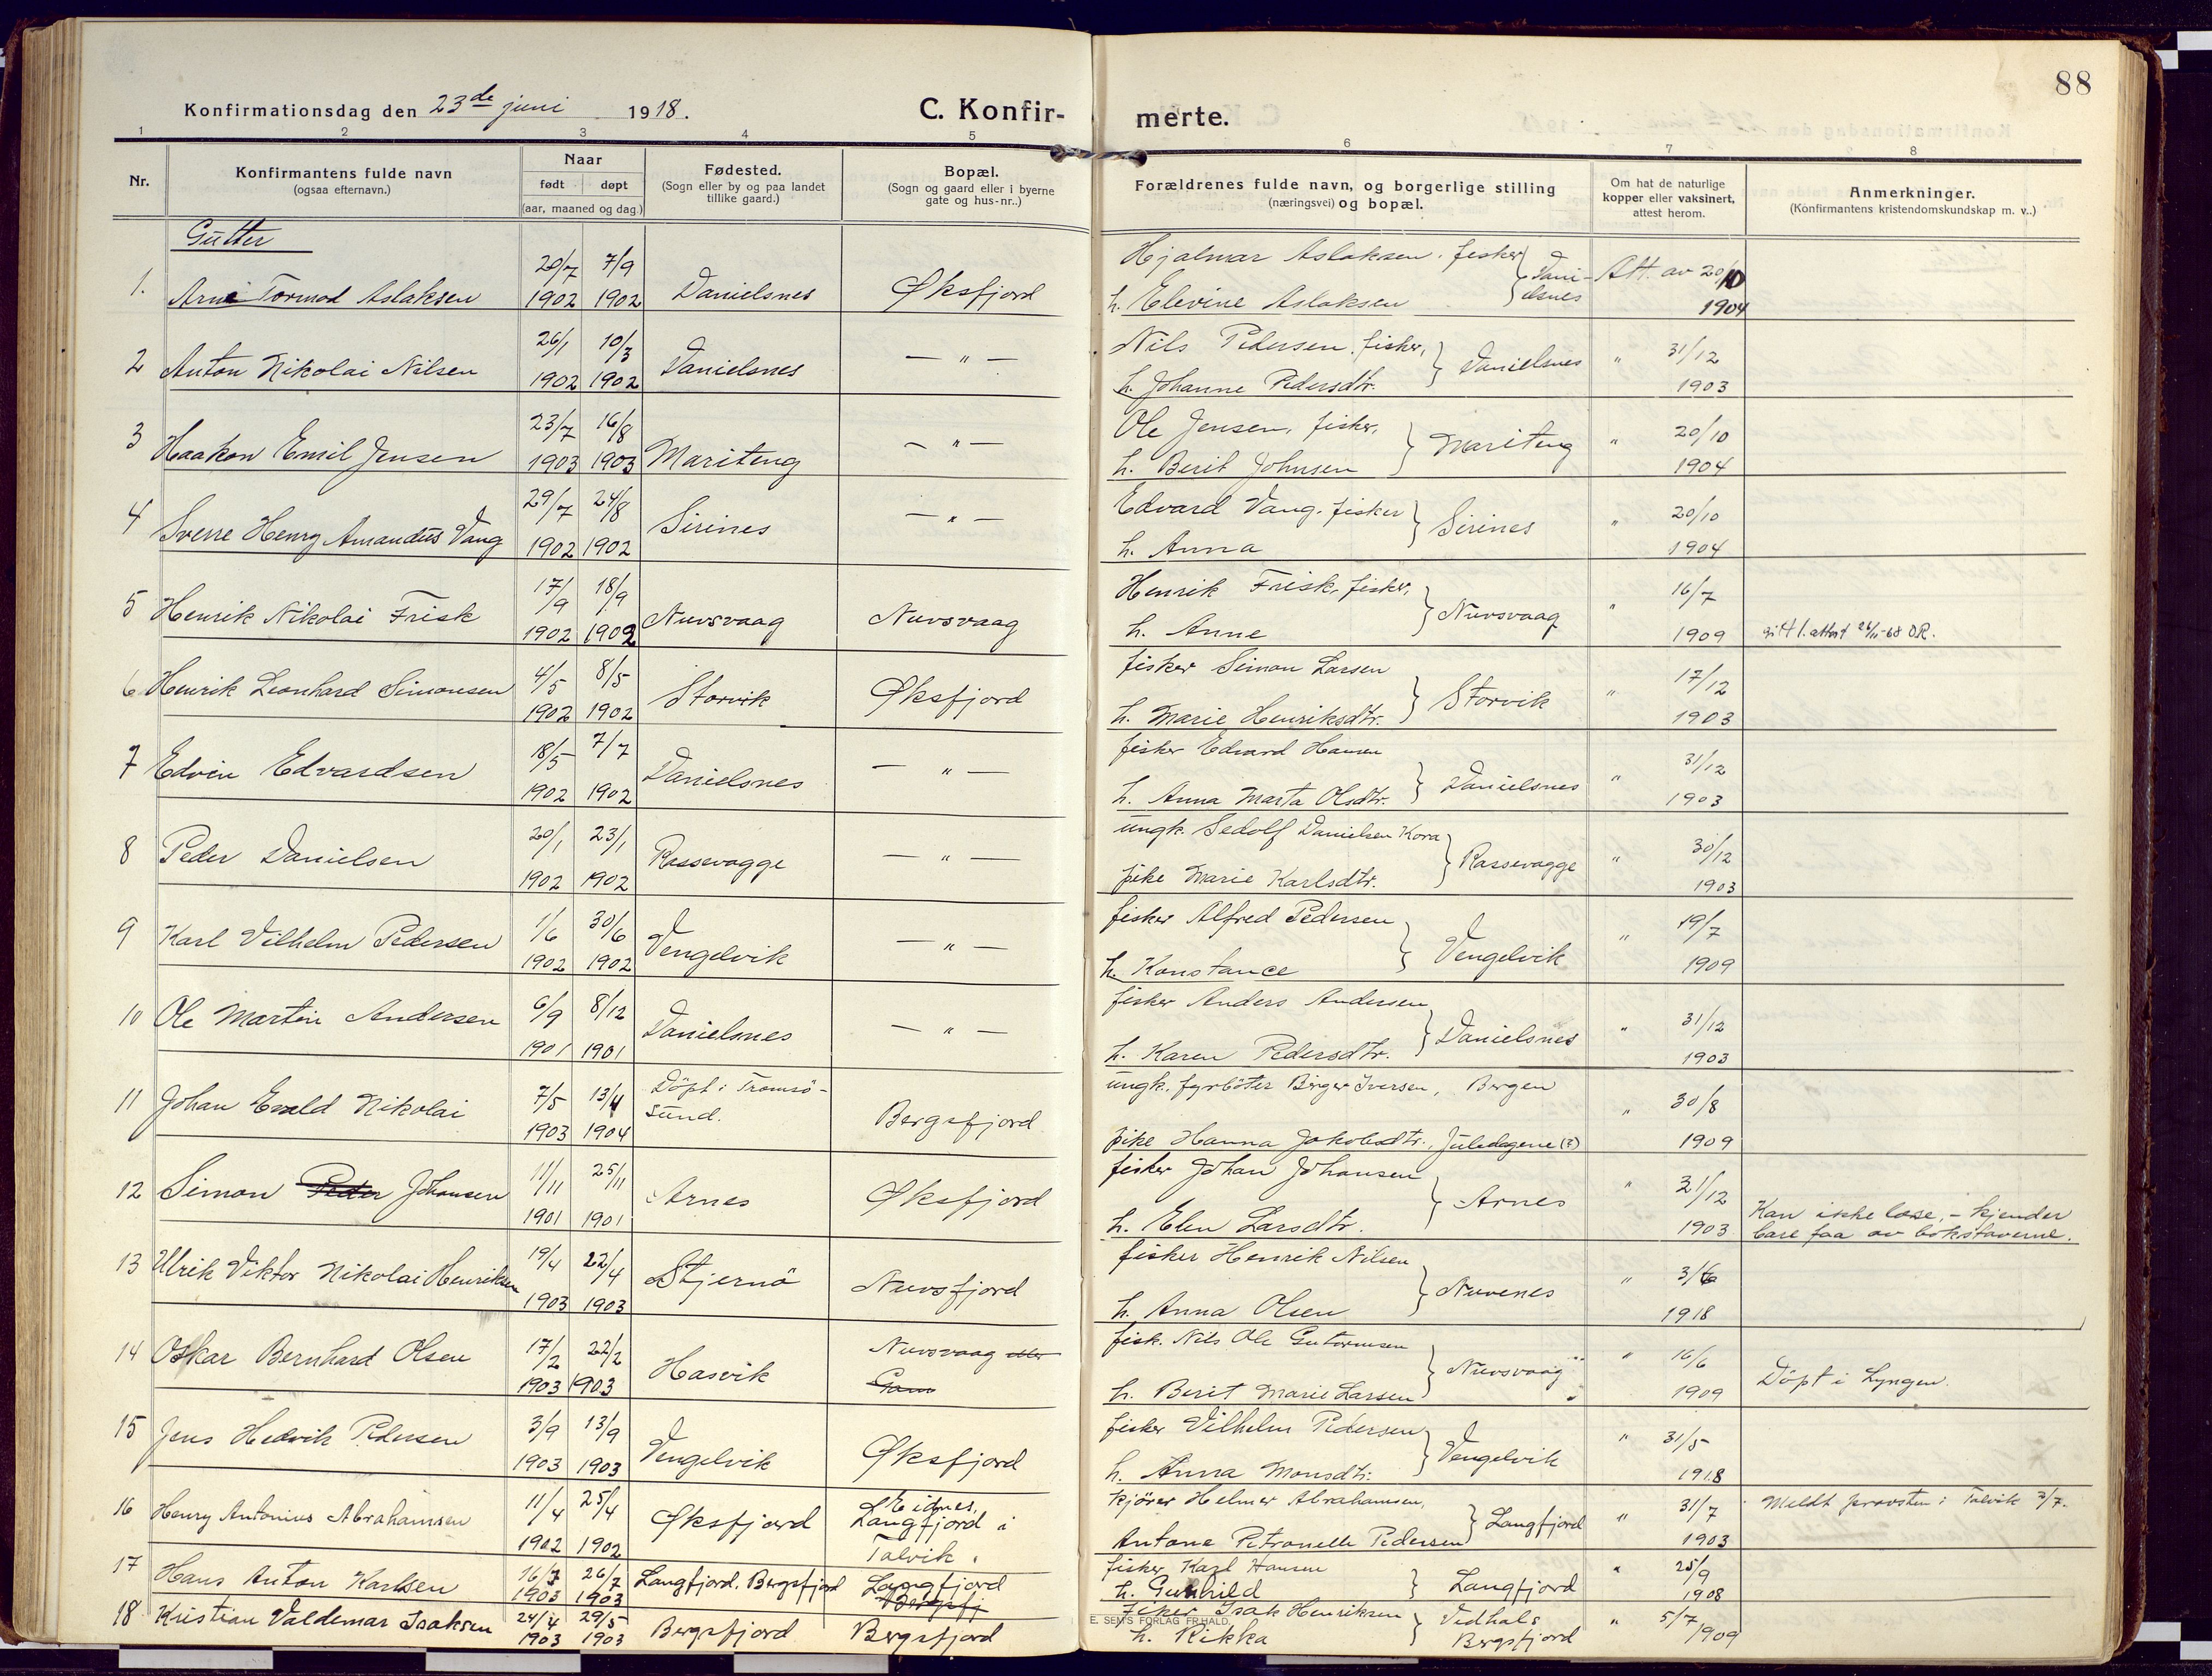 88
Konfirmationsdag den 23de juni 1918.
C. Konfirmerte.
1 2 3 4 5 6 7 8
Nr.
Konfirmantens fulde navn
(ogsaa efternavn.)
Naar
født døpt
(aar, maaned og dag.)
Fødested.
(Sogn eller by og paa landet
tillike gaard.)
Bopæl.
(Sogn og gaard eller i byerne
gate og hus-nr..)
Forældrenes fulde navn, og borgerlige stilling
(næringsvei) og bopæl.
Om hat de naturlige
kopper eller vaksinert,
attest herom.
Anmerkninger.
(Konfirmantens kristendomskundskap m. v..)
Gutter
1. Arne Tormod Aslaksen 20/7 1902 7/9 1902 Danielsnes Øksfjord
Hjalmar Aslaksen, fisker
h. Elevine Aslaksen } Danielsnes Att. av 20/10 1904
2 Anton Nikolai Nilsen 26/1 1902 10/3 1902 Danielsnes — " —
Nils Pedersen, fisker,
h. Johanne Pedersdtr. } Danielsnes " 31/12 1903
3 Haakon Emil Jensen 23/7 1903 16/8 1903 Mariteng — " —
Ole Jensen, fisker,
h. Berit Johnsen } Mariteng " 20/10 1904
4 Sverre Henry Amandus Vang 29/7 1902 24/8 1902 Sirines — " —
Edvard Vang, fisker
h. Anna } Sirines " 20/10 1904
5 Henrik Nikolai Frisk 17/9 1902 18/9 1902 Nuvsvaag Nuvsvaag
Henrik Frisk, fisker,
h. Anne } Nuvsvaag " 16/7 1909 gitt l. attest 26/11-68 OR.
6 Henrik Leonhard Simonsen 4/5 1902 8/5 1902 Storvik Øksfjord
fisker Simon Larsen
h. Marie Henriksdtr. } Storvik " 17/12 1903
7 Edvin Edvardsen 18/5 1902 7/7 1902 Danielsnes — " —
fisker Edvard Hansen
h. Anna Marta Olsdtr. } Danielsnes " 31/12 1903
8 Peder Danielsen 20/1 1902 23/1 1902 Rassevagge — " —
ungk. Sedolf Danielsen Kora
pike Marie Karlsdtr. } Rassevagge " 30/12 1903
9 Karl Vilhelm Pedersen 1/6 1902 30/6 1902 Vengelvik — " —
fisker Alfred Pedersen
h. Konstance } Vengelvik " 19/7 1909
10 Ole Martin Andersen 6/9 1901 8/12 1901 Danielsnes — " —
fisker Anders Andersen
h. Karen Pedersdtr. } Danielsnes " 31/12 1903
11 Johan Evald Nikolai 7/5 1903 13/4 1904 Döpt i Tromsö-
sund. Bergsfjord
ungk. fyrböter Birger Iversen, Bergen
pike Hanna Jakobsdtr., Juledagene (?) " 30/8 1909
12 Simon Peder Johansen 11/11 1901 25/11 1901 Arnes Øksfjord
fisker Johan Johansen
h. Elen Larsdtr. } Arnes " 31/12 1903 Kan ikke læse, - kjender
bare faa av bokstaverne.
13 Ulrik Viktor Nikolai Henriksen 19/4 1903 22/4 1903 Stjernö Nuvsfjord
fisker Henrik Nilsen
h. Anna Olsen } Nuvenes " 3/6 1918
14 Oskar Bernhard Olsen 17/2 1903 22/2 1903 Hasvik Nuvsvaag eller
Gam
fisk. Nils Ole Gutormsen
h. Berit Marie Larsen } Nuvsvaag " 16/6 1909 Döpt i Lyngen.
15 Jens Hedvik Pedersen 3/9 1903 13/9 1903 Vengelvik Øksfjord
fisker Vilhelm Pedersen
h. Anna Monsdtr. } Vengelvik " 31/5 1918
16 Henry Antonius Abrahamsen 11/4 1902 25/4 1902 Øksfjord Eidnes,
Langfjord i
Talvik.
kjörer Helmer Abrahamsen,
Antone Petronelle Pedersen } Langfjord " 31/7 1903 Meldt provsten i Talvik 3/7.
17 Hans Anton Karlsen 16/7 1903 26/7 1903 Langfjord, Bergsfjord Langfjord
Bergsfj
fisker Karl Hansen
h. Gunhild } Langfjord " 25/9 1908
18 Kristian Valdemar Isaksen 24/4 1903 29/5 1903 Bergsfjord Bergsfjord
Fisker Isak Henriksen
h. Rikka } Vedhals
Bergsfjord " 5/7 1909
E. SEM'S FORLAG FR.HALD.